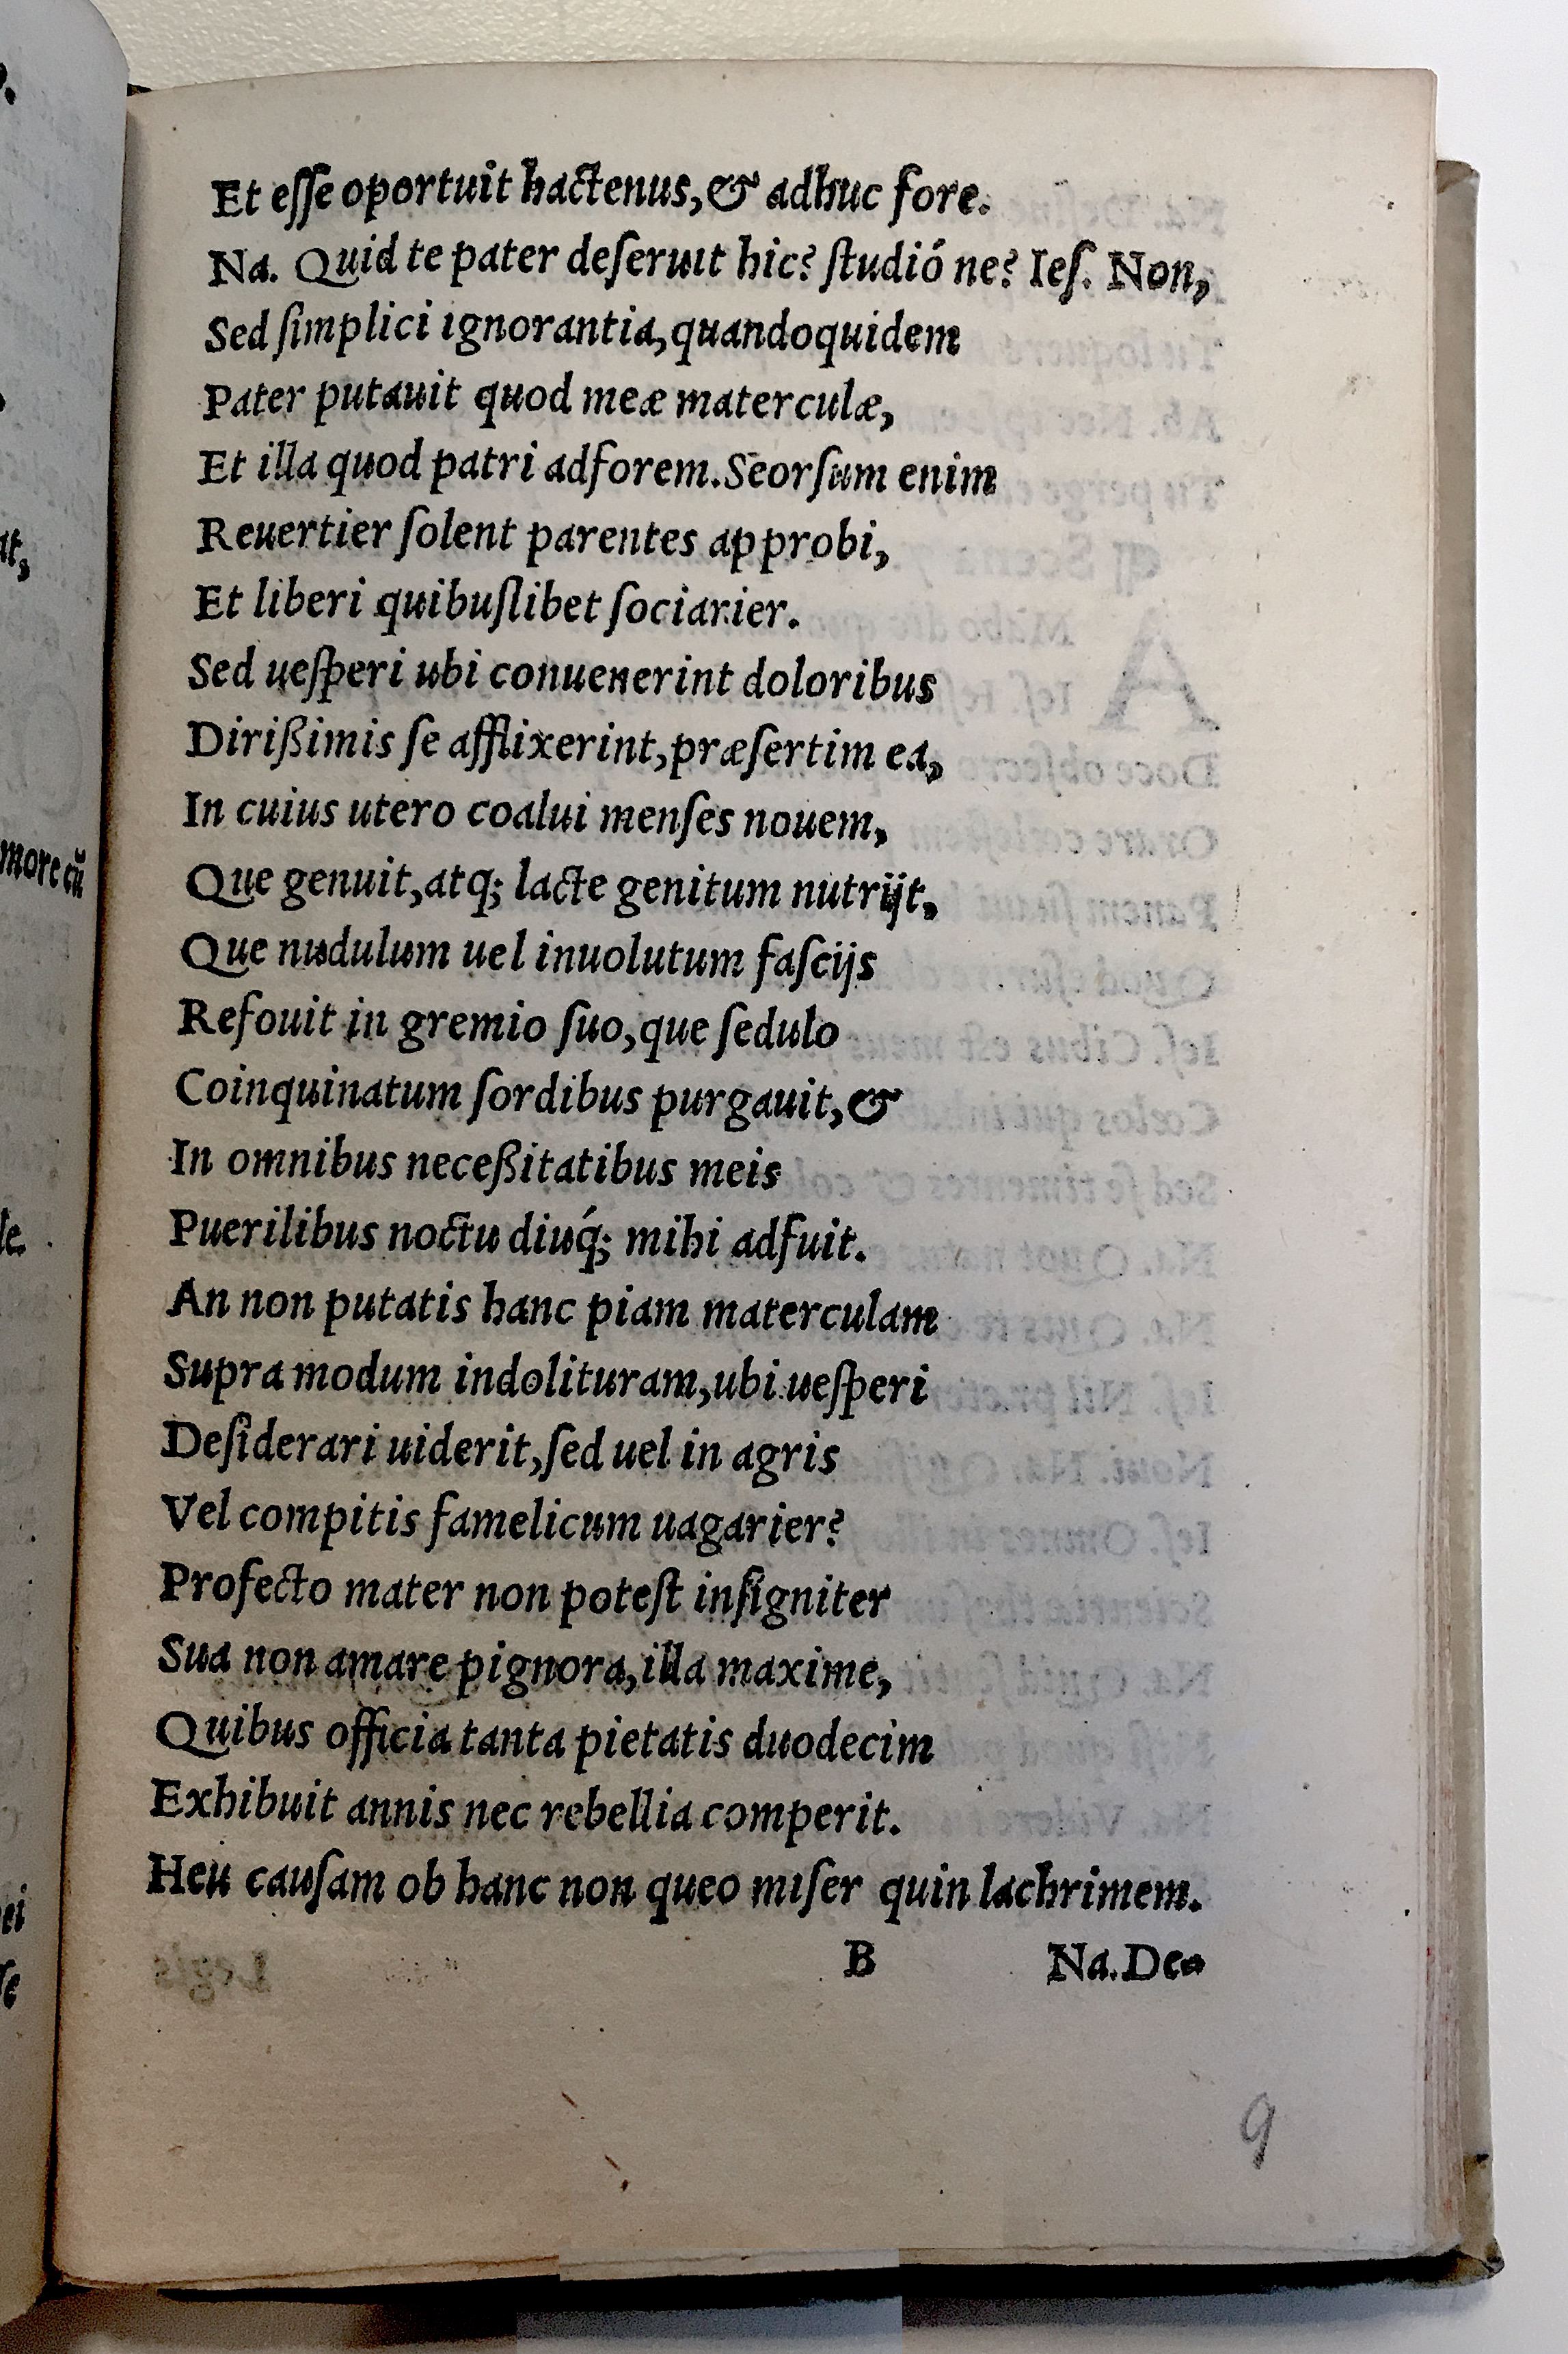 Et eſſe oportuit hactenus,& adhuc fore.
Na. Quid te pater deſeruit hic? ſtudió ne? Ieſ. Non,
Sed ſimplici ignorantia,quandoquidem
Pater putauit quod meæ materculæ,
Et illa quod patri adforem.Seorſum enim
Reuertier ſolent parentes approbi,
Et liberi quibuſlibet ſociarier.
Sed ueſperi ubi conuenerint doloribus
Dirißimis ſe afflixerint,præſertim ea,
In cuius utero coalui menſes nouem,
Que genuit,atq; lacte genitum nutrijt,
Que nudulum uel inuolutum faſcijs
Refouit in gremio ſuo,que ſedulo
Coinquinatum ſordibus purgauit,&
In omnibus neceßitatibus meis
Puerilibus noctu diuq́; mihi adfuit.
An non putatis hanc piam materculam
Supra modum indolituram,ubi ueſperi
Deſiderari uiderit,ſed uel in agris
Vel compitis famelicum uagarier?
Profecto mater non poteſt inſigniter
Sua non amare pignora,illa maxime,
Quibus officia tanta pietatis duodecim
Exhibuit annis nec rebellia comperit.
Heu cauſam ob hanc non queo miſer quin lachrimem.
B Na.De
9